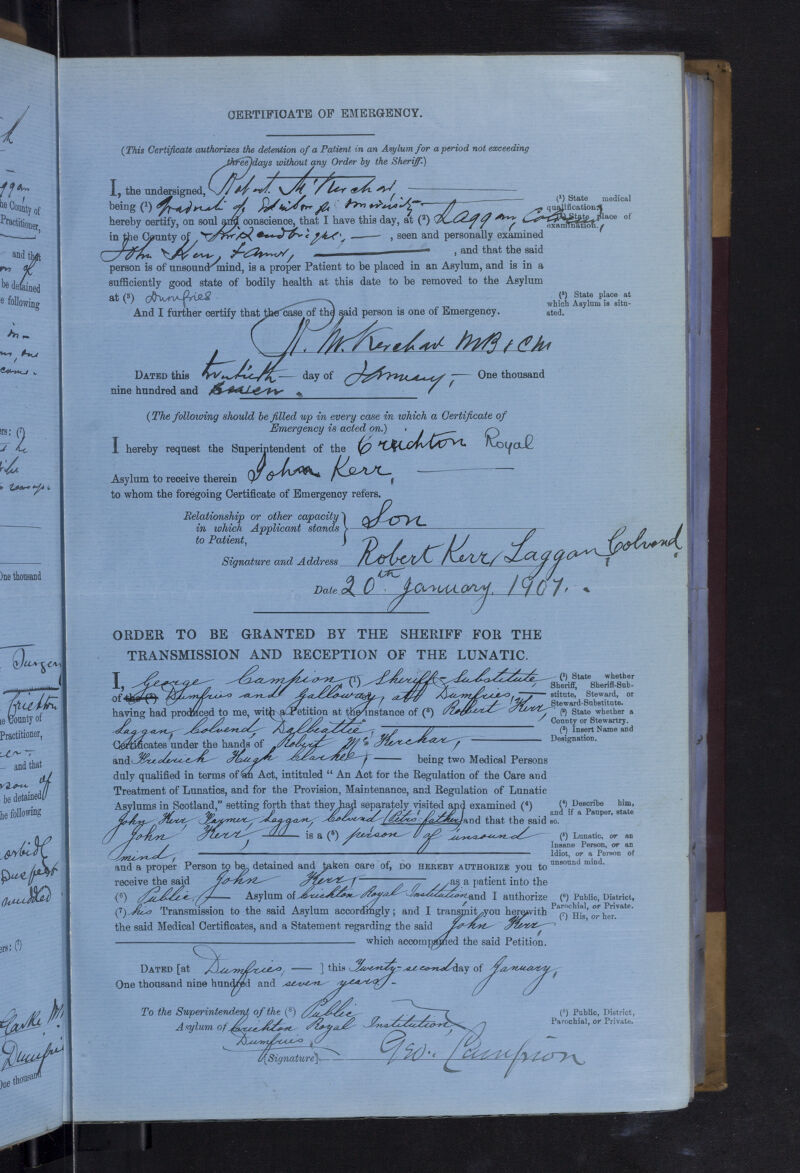 CERTIFICATE OF EMERGENCY.
(This Certificate authorizes the detention of a Patient in an Asylum for a period not exceeding
three days without any Order by the Sheriff.)
I, the undersigned, Robert McKerchar,
being (¹) Graduate of Edinbor University
hereby certify, on soul and conscience, that I have this day, at (²) Laggan, Colvend
in the County of Kirkcudbright, — , seen and personally examined
John Kerr, Farmer, , and that the said
person is of unsound mind, is a proper Patient to be placed in an Asylum, and is in a
sufficiently good state of bodily health at this date to be removed to the Asylum
at (³) Dumfries
And I further certify that the case of the said person is one of Emergency.
R. McKerchar MB & CM
DATED this twentieth — day of January, — One thousand
nine hundred and seven.
(¹) State medical
qualifications.
(²) State place of
examination.
(³) State place at
which Asylum is situ-
ated.
(The following should be filled up in every case in which a Certificate of
Emergency is acted on.)
I hereby request the Superintendent of the Crichton Royal
Asylum to receive therein John Kerr,
to whom the foregoing Certificate of Emergency refers.
Relationship or other capacity
in which Applicant stands
to Patient, } Son
Signature and Address Robert Kerr, Laggan, Colvend.
Date 20th January. 1907.
ORDER TO BE GRANTED BY THE SHERIFF FOR THE
TRANSMISSION AND RECEPTION OF THE LUNATIC.
I, George Campion, (¹) Sheriff-Substitute
of the (²) Dumfries and Galloway, at Dumfries, —
having had produced to me, with a Petition at the instance of (³) Robert Kerr,
Laggan, Colvend, Dalbeattie,
Certificates under the hands of Robert McKerchar, —
and Frederick Hugh Clarke, — being two Medical Persons
duly qualified in terms of an Act, intituled “ An Act for the Regulation of the Care and
Treatment of Lunatics, and for the Provision, Maintenance, and Regulation of Lunatic
Asylums in Scotland,” setting forth that they had separately visited and examined (⁴)
John Kerr, Farmer, Laggan, Colvend (Petrs. father) and that the said
John Kerr, — is a (⁵) person of unsound
mind,
and a proper Person to be detained and taken care of, DO HEREBY AUTHORIZE you to
receive the said John Kerr, — as a patient into the
(⁶) Public — Asylum of Crichton Royal Institution and I authorize
(⁷) his Transmission to the said Asylum accordingly; and I transmit you herewith
the said Medical Certificates, and a Statement regarding the said John Kerr
which accompanied the said Petition.
DATED [at Dumfries, — ] this Twenty-second day of January,
One thousand nine hundred and seven years.
To the Superintendent of the (⁸) Public
Asylum of Crichton Royal Institution,
Dumfries.
(Signature). Geo. Campion
(¹) State whether
Sheriff, Sheriff-Sub-
stitute, Steward, or
Steward-Substitute.
(²) State whether a
County or Stewartry.
(³) Insert Name and
Designation.
(⁴) Describe him,
and if a Pauper, state
so.
(⁵) Lunatic, or an
Insane Person, or an
Idiot, or a Person of
unsound mind.
(⁶) Public, District,
Parochial, or Private.
(⁷) His, or her.
(⁸) Public, District,
Parochial, or Private.